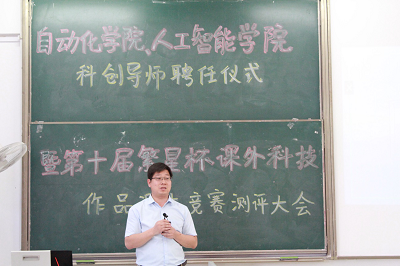 自动化学院、人工智能学院
科创导师聘任仪式
暨第十届繁星杯课外科技
作品 竞赛测评大会